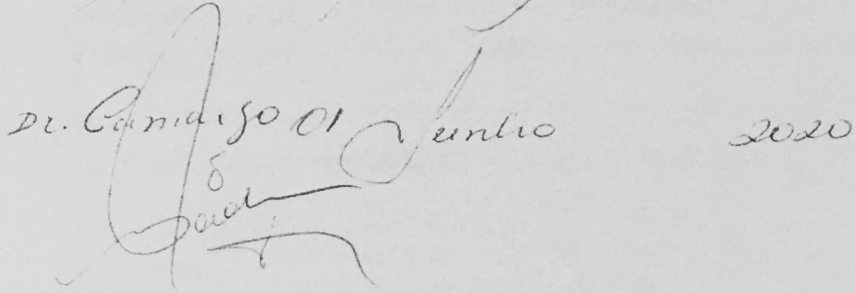 Dr. Camargo 01 Junho 2020